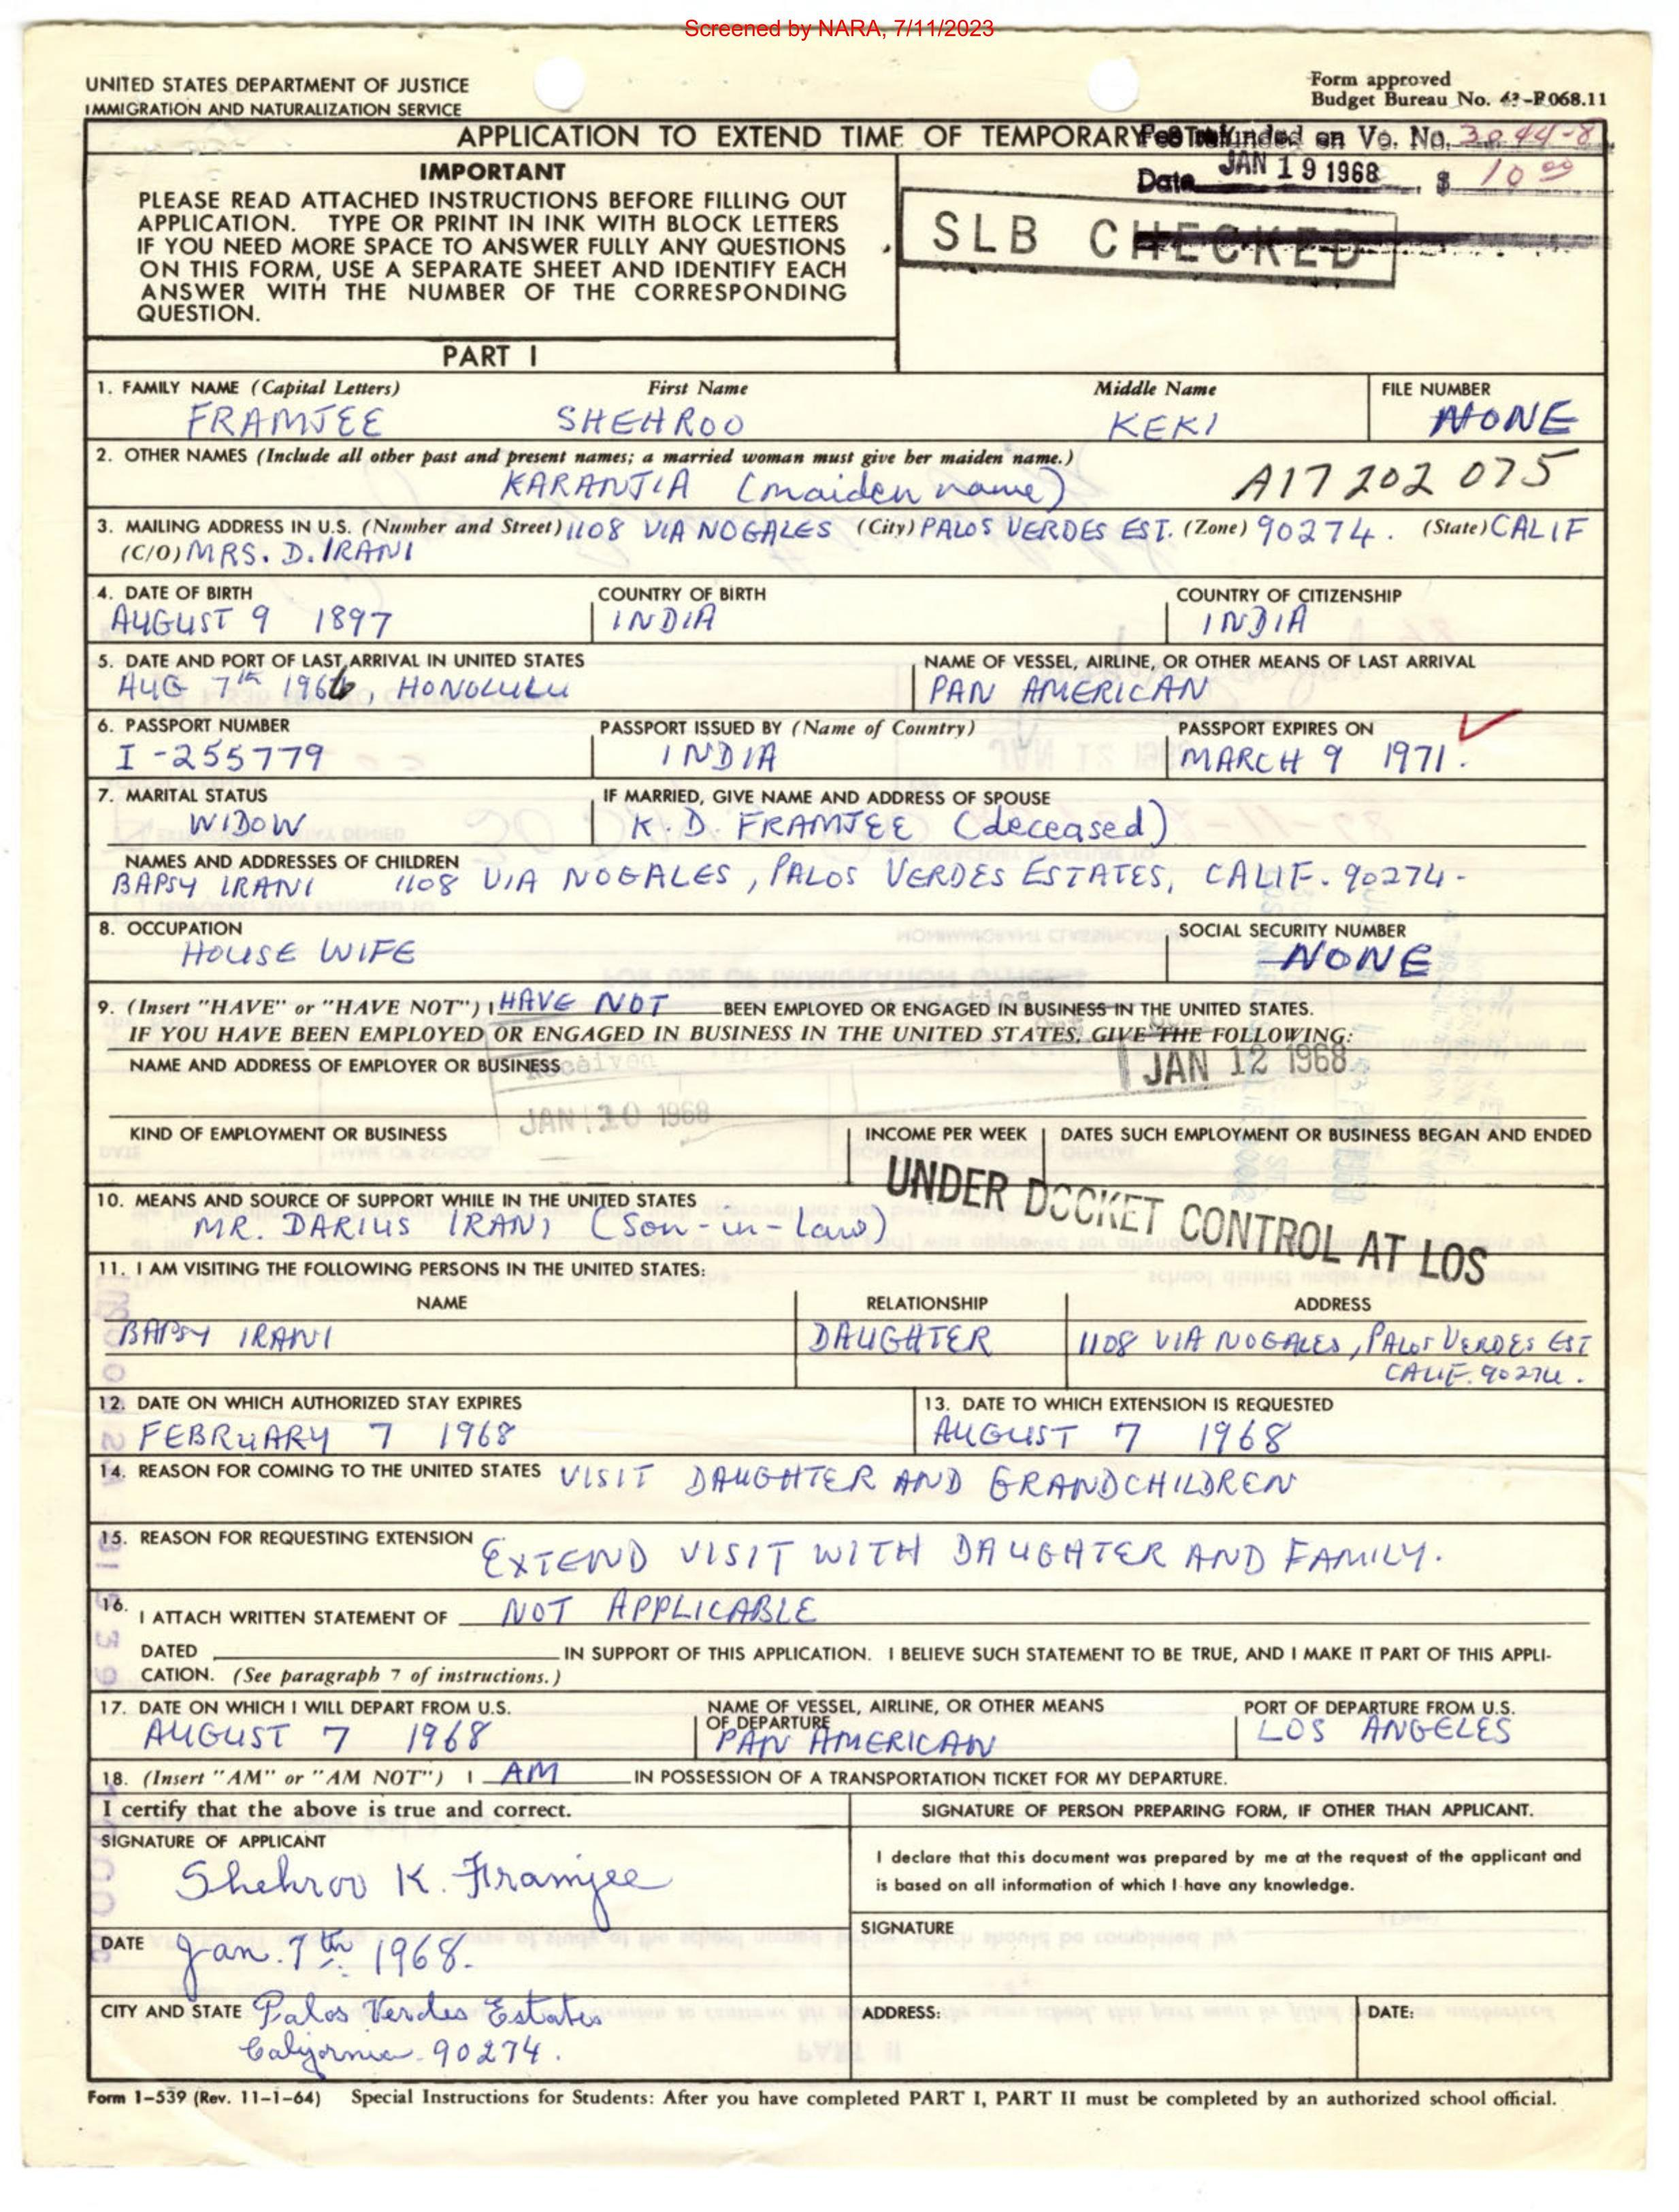 Screened by NARA, 7/11/2023
UNITED STATES DEPARTMENT OF JUSTICE
IMMIGRATION AND NATURALIZATION SERVICE
Form approved
Budget Bureau No. 43-R068.11
APPLICATION TO EXTEND TIME OF TEMPORARY
Refunded on Vo. No. 3844-8
Date JAN 19 1968 $ 10 00
SLB CHECKED
IMPORTANT
PLEASE READ ATTACHED INSTRUCTIONS BEFORE FILLING OUT
APPLICATION. TYPE OR PRINT IN INK WITH BLOCK LETTERS
IF YOU NEED MORE SPACE TO ANSWER FULLY ANY QUESTIONS
ON THIS FORM, USE A SEPARATE SHEET AND IDENTIFY EACH
ANSWER WITH THE NUMBER OF THE CORRESPONDING
QUESTION.
PART I
1. FAMILY NAME (Capital Letters) First Name Middle Name FILE NUMBER
FRAMJEE SHEHROO KEKI NONE
2. OTHER NAMES (Include all other past and present names; a married woman must give her maiden name.)
KARANJIA (maiden name) A17 202 075
3. MAILING ADDRESS IN U.S. (Number and Street) 1108 VIA NOGALES (City) PALOS VERDES EST. (Zone) 90274. (State) CALIF
(C/O) MRS. D. IRANI
4. DATE OF BIRTH COUNTRY OF BIRTH COUNTRY OF CITIZENSHIP
AUGUST 9 1897 INDIA INDIA
5. DATE AND PORT OF LAST ARRIVAL IN UNITED STATES NAME OF VESSEL, AIRLINE, OR OTHER MEANS OF LAST ARRIVAL
AUG 7th 1966, HONOLULU PAN AMERICAN
6. PASSPORT NUMBER PASSPORT ISSUED BY (Name of Country) PASSPORT EXPIRES ON
I-255779 INDIA MARCH 9 1971.
7. MARITAL STATUS IF MARRIED, GIVE NAME AND ADDRESS OF SPOUSE
WIDOW K. D. FRAMJEE (deceased)
NAMES AND ADDRESSES OF CHILDREN
BAPSY IRANI 1108 VIA NOGALES, PALOS VERDES ESTATES, CALIF. 90274-
8. OCCUPATION SOCIAL SECURITY NUMBER
HOUSE WIFE NONE
9. (Insert "HAVE" or "HAVE NOT") I HAVE NOT BEEN EMPLOYED OR ENGAGED IN BUSINESS IN THE UNITED STATES.
IF YOU HAVE BEEN EMPLOYED OR ENGAGED IN BUSINESS IN THE UNITED STATES, GIVE THE FOLLOWING:
NAME AND ADDRESS OF EMPLOYER OR BUSINESS
Received
JAN 12 1968
JAN 10 1968
KIND OF EMPLOYMENT OR BUSINESS INCOME PER WEEK DATES SUCH EMPLOYMENT OR BUSINESS BEGAN AND ENDED
UNDER DOCKET CONTROL AT LOS
10. MEANS AND SOURCE OF SUPPORT WHILE IN THE UNITED STATES
MR. DARIUS IRANI (Son-in-Law)
11. I AM VISITING THE FOLLOWING PERSONS IN THE UNITED STATES:
NAME RELATIONSHIP ADDRESS
BAPSY IRANI DAUGHTER 1108 VIA NOGALES, PALOS VERDES EST
CALIF. 90274.
12. DATE ON WHICH AUTHORIZED STAY EXPIRES 13. DATE TO WHICH EXTENSION IS REQUESTED
FEBRUARY 7 1968 AUGUST 7 1968
14. REASON FOR COMING TO THE UNITED STATES VISIT DAUGHTER AND GRANDCHILDREN
15. REASON FOR REQUESTING EXTENSION EXTEND VISIT WITH DAUGHTER AND FAMILY.
16. I ATTACH WRITTEN STATEMENT OF NOT APPLICABLE
DATED IN SUPPORT OF THIS APPLICATION. I BELIEVE SUCH STATEMENT TO BE TRUE, AND I MAKE IT PART OF THIS APPLI-
CATION. (See paragraph 7 of instructions.)
17. DATE ON WHICH I WILL DEPART FROM U.S. NAME OF VESSEL, AIRLINE, OR OTHER MEANS OF DEPARTURE PORT OF DEPARTURE FROM U.S.
AUGUST 7 1968 PAN AMERICAN LOS ANGELES
18. (Insert "AM" or "AM NOT") I AM IN POSSESSION OF A TRANSPORTATION TICKET FOR MY DEPARTURE.
I certify that the above is true and correct. SIGNATURE OF PERSON PREPARING FORM, IF OTHER THAN APPLICANT.
SIGNATURE OF APPLICANT
Shehroo K. Framjee
I declare that this document was prepared by me at the request of the applicant and
is based on all information of which I have any knowledge.
SIGNATURE
DATE Jan. 7th 1968.
CITY AND STATE Palos Verdes Estates
California 90274.
ADDRESS: DATE:
Form I-539 (Rev. 11-1-64) Special Instructions for Students: After you have completed PART I, PART II must be completed by an authorized school official.